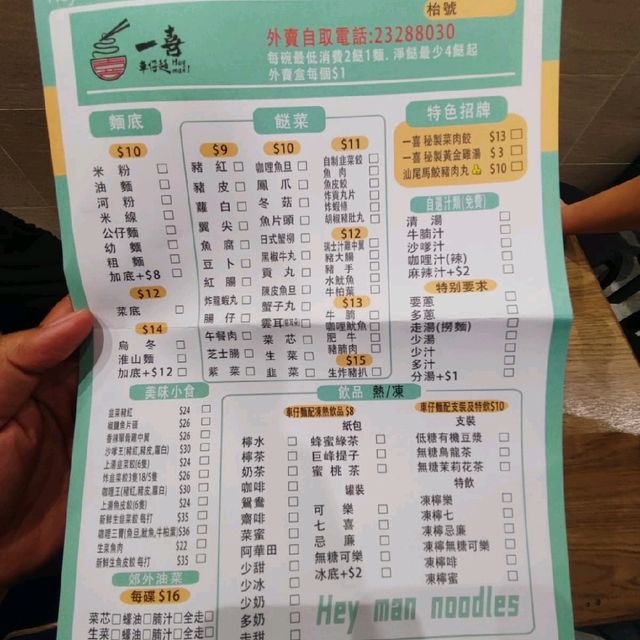 枱號
一喜
車仔麵
Hey man!
外賣自取電話:23288030
每碗最低消費2餸1麵. 淨餸最少4餸起
外賣盒每個$1
麵底
$10
米粉
油麵
河粉
米線
公仔麵
幼麵
粗麵
加底+$8
$12
菜底
$14
烏冬
淮山麵
加底+$12
餸菜
$9
豬紅
豬皮
蘿白
翼尖
魚腐
豆卜
紅腸
炸龍蝦丸
腸仔
午餐肉
芝士腸
紫菜
$10
咖哩魚旦
鳳爪
冬菇
魚片頭
日式蟹柳
黑椒牛丸
貢丸
陳皮魚旦
蟹子丸
雲耳
菜芯
生菜
韭菜
$11
自制韭菜餃
魚肉
魚皮餃
炸貢丸片
炸蝦條
胡椒豬肚丸
$12
瑞士汁雞中翼
豬大腸
豬手
水魷魚
牛柏葉
$13
牛腩
咖哩魷魚
肥牛
豬腩肉
$15
生炸豬扒
特色招牌
一喜 秘製菜肉餃 $13
一喜 秘製黃金雞湯 $3
汕尾馬鮫豬肉丸 $10
自選汁類(免費)
清湯
牛腩汁
沙嗲汁
咖哩汁(辣)
麻辣汁+$2
特别要求
要蔥
多蔥
走湯(撈麵)
少湯
少汁
多汁
分湯+$1
美味小食
韭菜豬紅 $24
椒鹽魚片頭 $26
香辣單骨雞中翼 $26
沙嗲王(豬紅,豬皮,蘿白) $30
上湯韭菜餃(6隻) $24
炸韭菜餃3隻18/5隻 $26
咖哩王(豬紅,豬皮,蘿白) $30
上湯魚皮餃(6隻) $24
新鮮生韭菜餃 每打 $35
咖哩三寶(魚旦,魷魚,牛柏葉) $36
生菜魚肉 $22
新鮮生魚皮餃 每打 $35
郊外油菜
每碟 $16
菜芯 蠔油 腩汁 全走
生菜 蠔油 腩汁 全走
飲品 熱/凍
車仔麵配凍熱飲品 $8
檸水
檸茶
奶茶
咖啡
鴛鴦
齋啡
菜蜜
阿華田
少甜
少冰
少奶
多奶
走甜
紙包
蜂蜜綠茶
巨峰提子
蜜桃茶
罐裝
可樂
七喜
忌廉
無糖可樂
冰底+$2
車仔麵配支裝及特飲$10
支裝
低糖有機豆漿
無糖烏龍茶
無糖茉莉花茶
特飲
凍檸樂
凍檸七
凍檸忌廉
凍檸無糖可樂
凍檸啡
凍檸蜜
Hey man noodles